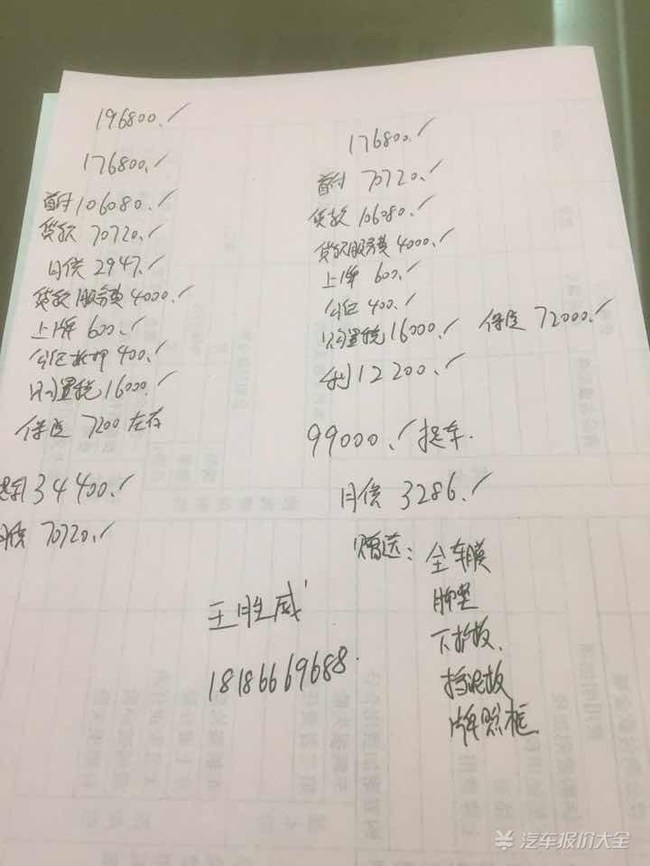 196800./
176800./
首付106080./
贷款 70720./
月供 2947./
贷款服务费4000./
上牌 600./
公证抵押 400./
购置税16000./
保险 7200左右
34400./
70720./
176800./
首付 70720./
贷款 106080./
贷款服务费4000./
上牌 600./
公证 400./
购置税16000./ 保险 72000./
利12200./
99000./ 提车.
月供 3286./
赠送: 全车膜
脚垫
下护板.
挡泥板
牌照框
王胜威
18186669688.
汽车报价大全